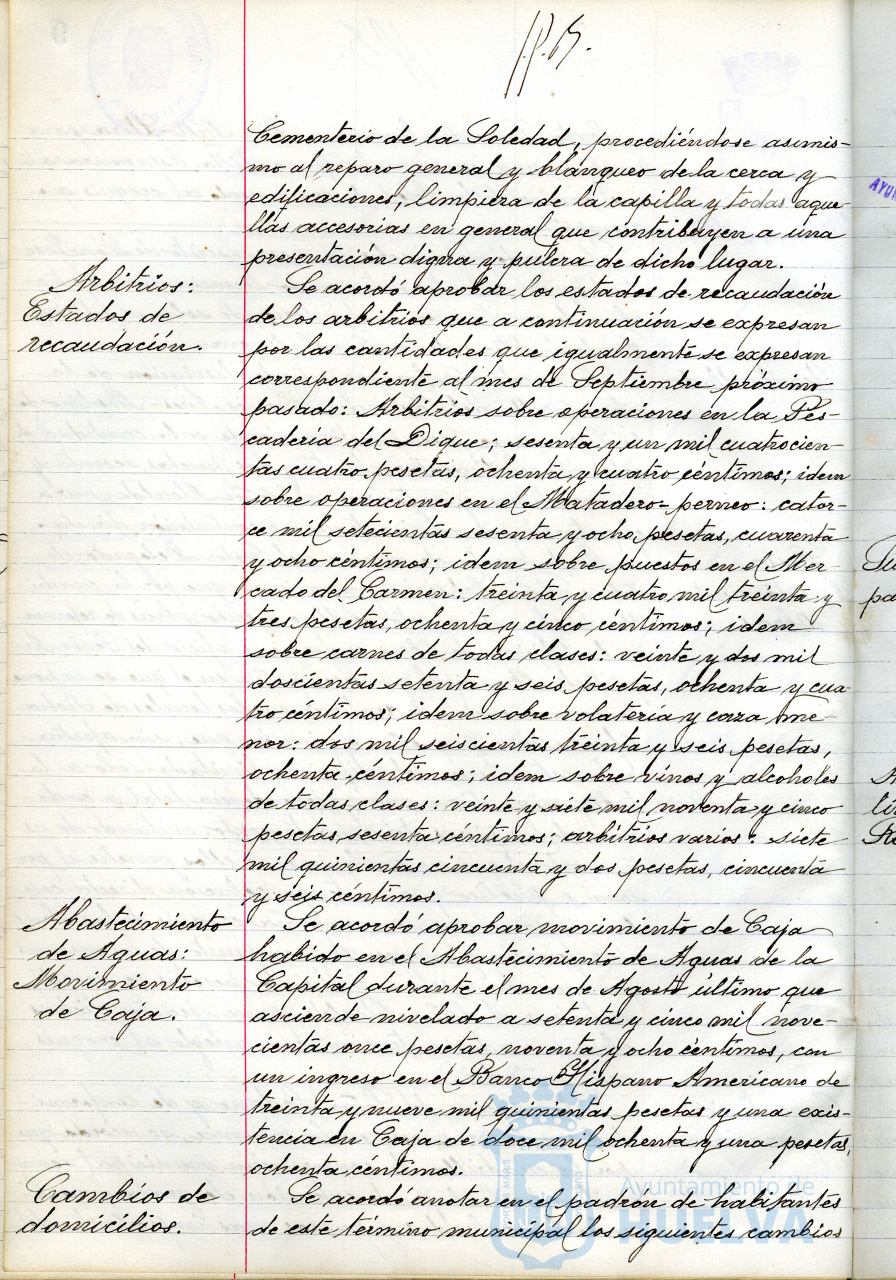 Cementerio de la Soledad, procediéndose asimis-
mo al reparo general y blanqueo de la cerca y
edificaciones, limpiera de la capilla y todas aque
llas accesorias en general que contribuyen a una
presentación digna y pulcra de dicho lugar.
Arbitrios:
Estados de
recaudación.
Se acordó aprobar los estados de recaudación
de los arbitrios que a continuación se expresan
por las cantidades que igualmente se expresan
correspondiente al mes de Septiembre próximo
pasado: Arbitrios sobre operaciones en la Pes-
cadería del Dique; sesenta y un mil cuatrocien-
tas cuatro pesetas, ochenta y cuatro céntimos; idem
sobre operaciones en el Matadero-perneo: cator-
ce mil setecientas sesenta y ocho pesetas, cuarenta
y ocho céntimos; idem sobre puestos en el Mer
cado del Carmen: treinta y cuatro mil treinta y
tres pesetas, ochenta y cinco céntimos; idem
sobre carnes de todas clases: veinte y dos mil
doscientas setenta y seis pesetas, ochenta y cua-
tro céntimos; idem sobre volatería y caza me-
nor: dos mil seiscientas treinta y seis pesetas,
ochenta céntimos; idem sobre vinos y alcoholes
de todas clases: veinte y siete mil noventa y cinco
pesetas sesenta céntimos; arbitrios varios: siete
mil quinientas cincuenta y dos pesetas, cincuenta
y seis céntimos.
Abastecimiento
de Aguas:
Movimiento
de Caja.
Se acordó aprobar movimiento de Caja
habido en el Abastecimiento de Aguas de la
Capital durante el mes de Agosto último que
asciende nivelado a setenta y cinco mil nove-
cientas once pesetas, noventa y ocho céntimos, con
un ingreso en el Banco Hispano Americano de
treinta y nueve mil quinientas pesetas y una exis-
tencia en Caja de doce mil ochenta y una pesetas,
ochenta céntimos.
Cambios de
domicilios.
Se acordó anotar en el padrón de habitantes
de este término municipal los siguientes cambios
Ayuntamiento de
HUELVA